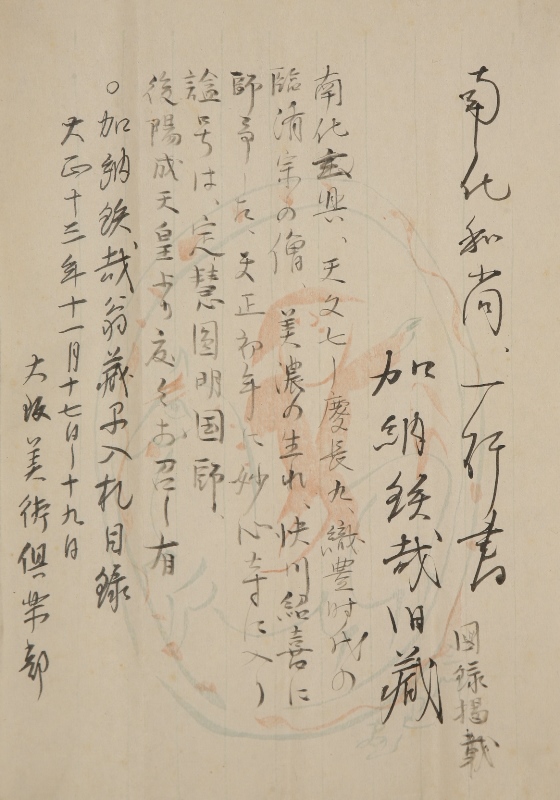 南化和尚、一行書
図録掲載
加納鉄哉旧蔵
南化玄興、天文七〜慶長九、織豊時代の
臨済宗の僧、美濃の生れ、快川紹喜に
師事し、天正初年に妙心寺に入り
諡号は、定慧圓明国師、
後陽成天皇より度々お召し有
○加納鉄哉翁蔵品入札目録
大正十三年十一月十七日〜十九日
大阪美術倶楽部